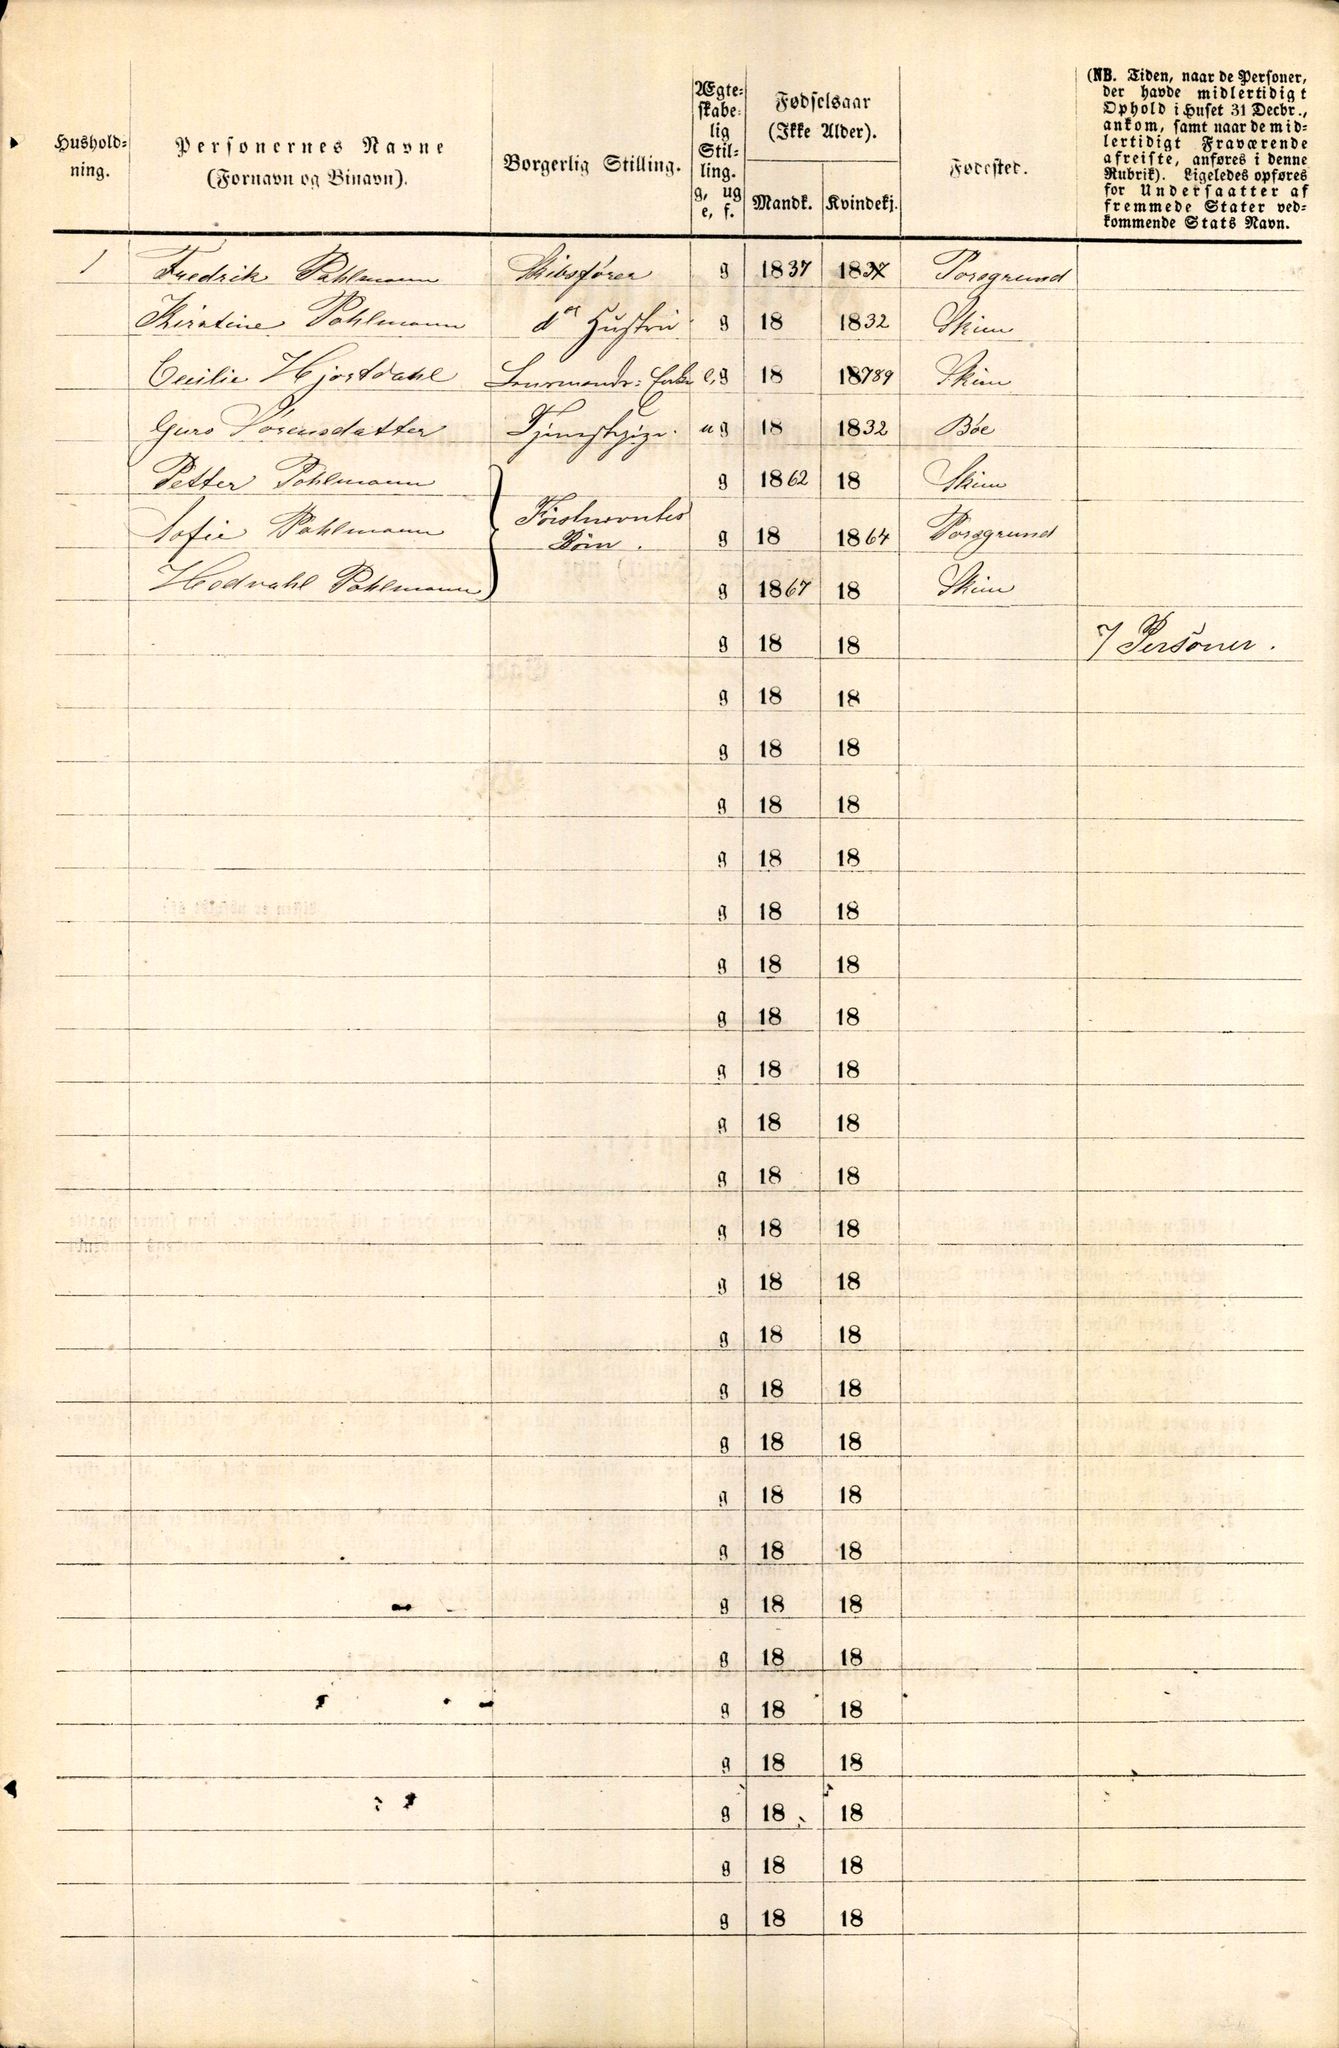 Hushold-
ning.
Personernes Navne
(Fornavn og Binavn).
Borgerlig Stilling.
Ægte-
skabe-
lig
Stil-
ling.
g, ug
e, f.
Fødselsaar
(Ikke Alder).
Mandk. Kvindekj.
Fødested.
(NB. Tiden, naar de Personer,
der havde midlertidigt
Ophold i Huset 31 Decbr.,
ankom, samt naar de mid-
lertidigt Fraværende
afreiste, anføres i denne
Rubrik). Ligeledes opføres
for Undersaatter af
fremmede Stater ved-
kommende Stats Navn.
1 Fredrik Pohlmann Skibsfører g 1837 1837 Porsgrund
Kirstine Pohlmann ds Hustru g 18 1832 Skien
Cecilie Hjortdahl e, g 18 18789 Skien
Guro Sørensdatter Tjenestepige u g 18 1832 Bøe
Petter Pohlmann g 1862 18 Skien
Sofie Pohlmann Førstnævntes
Børn. g 18 1864 Porsgrund
Hedvahl Pohlmann g 1867 18 Skien
g 18 18 7 Personer.
g 18 18
g 18 18
g 18 18
g 18 18
g 18 18
g 18 18
g 18 18
g 18 18
g 18 18
g 18 18
g 18 18
g 18 18
g 18 18
g 18 18
g 18 18
g 18 18
g 18 18
g 18 18
g 18 18
g 18 18
g 18 18
g 18 18
g 18 18
g 18 18